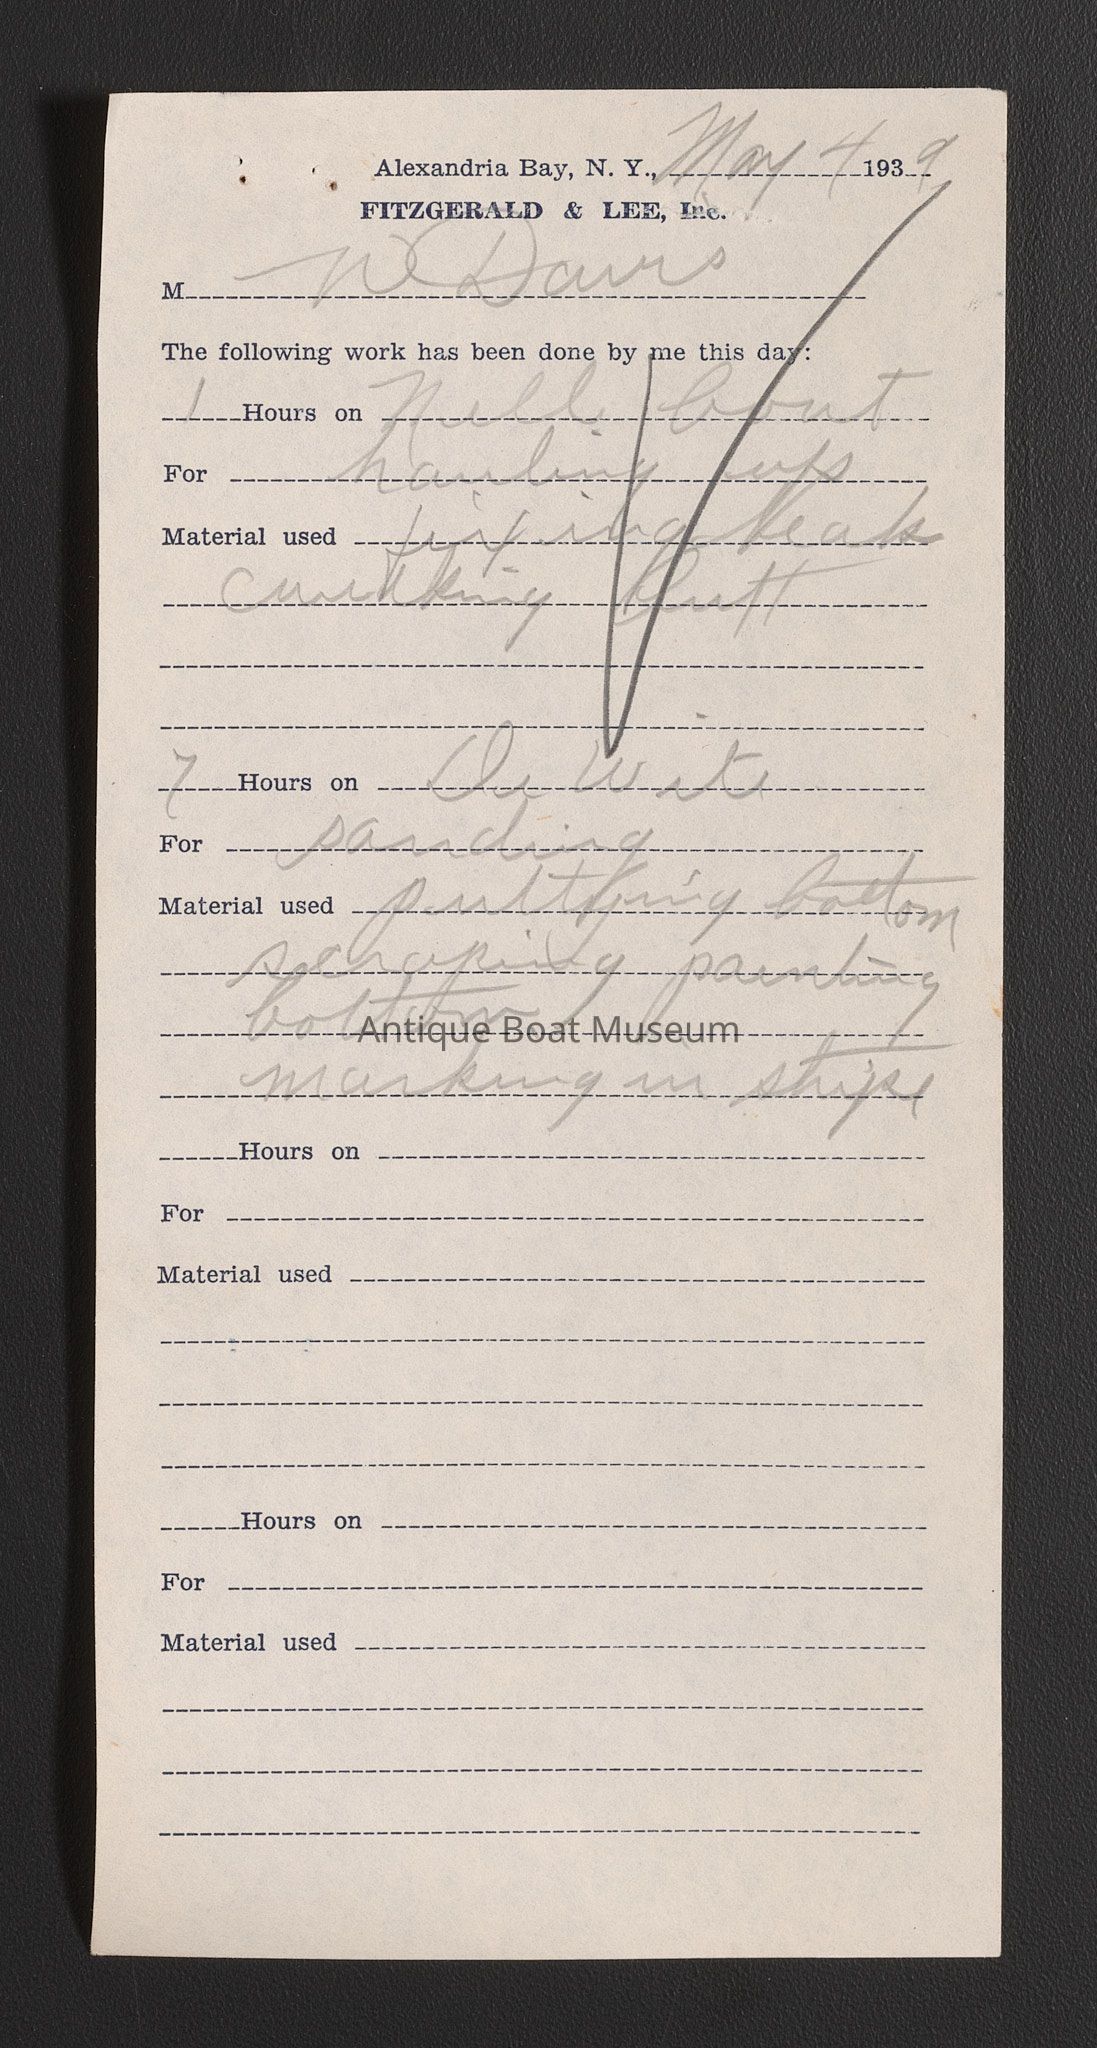 Alexandria Bay, N. Y., May 4 1939
FITZGERALD & LEE, Inc.
M W Davis
The following work has been done by me this day:
1 Hours on Nell boat
For hauling up
Material used fixing leak
caulking butt
7 Hours on De Wite
For sanding
Material used puttying bottom
scraping painting
bottom
Antique Boat Museum
marking in stripe
Hours on
For
Material used
Hours on
For
Material used